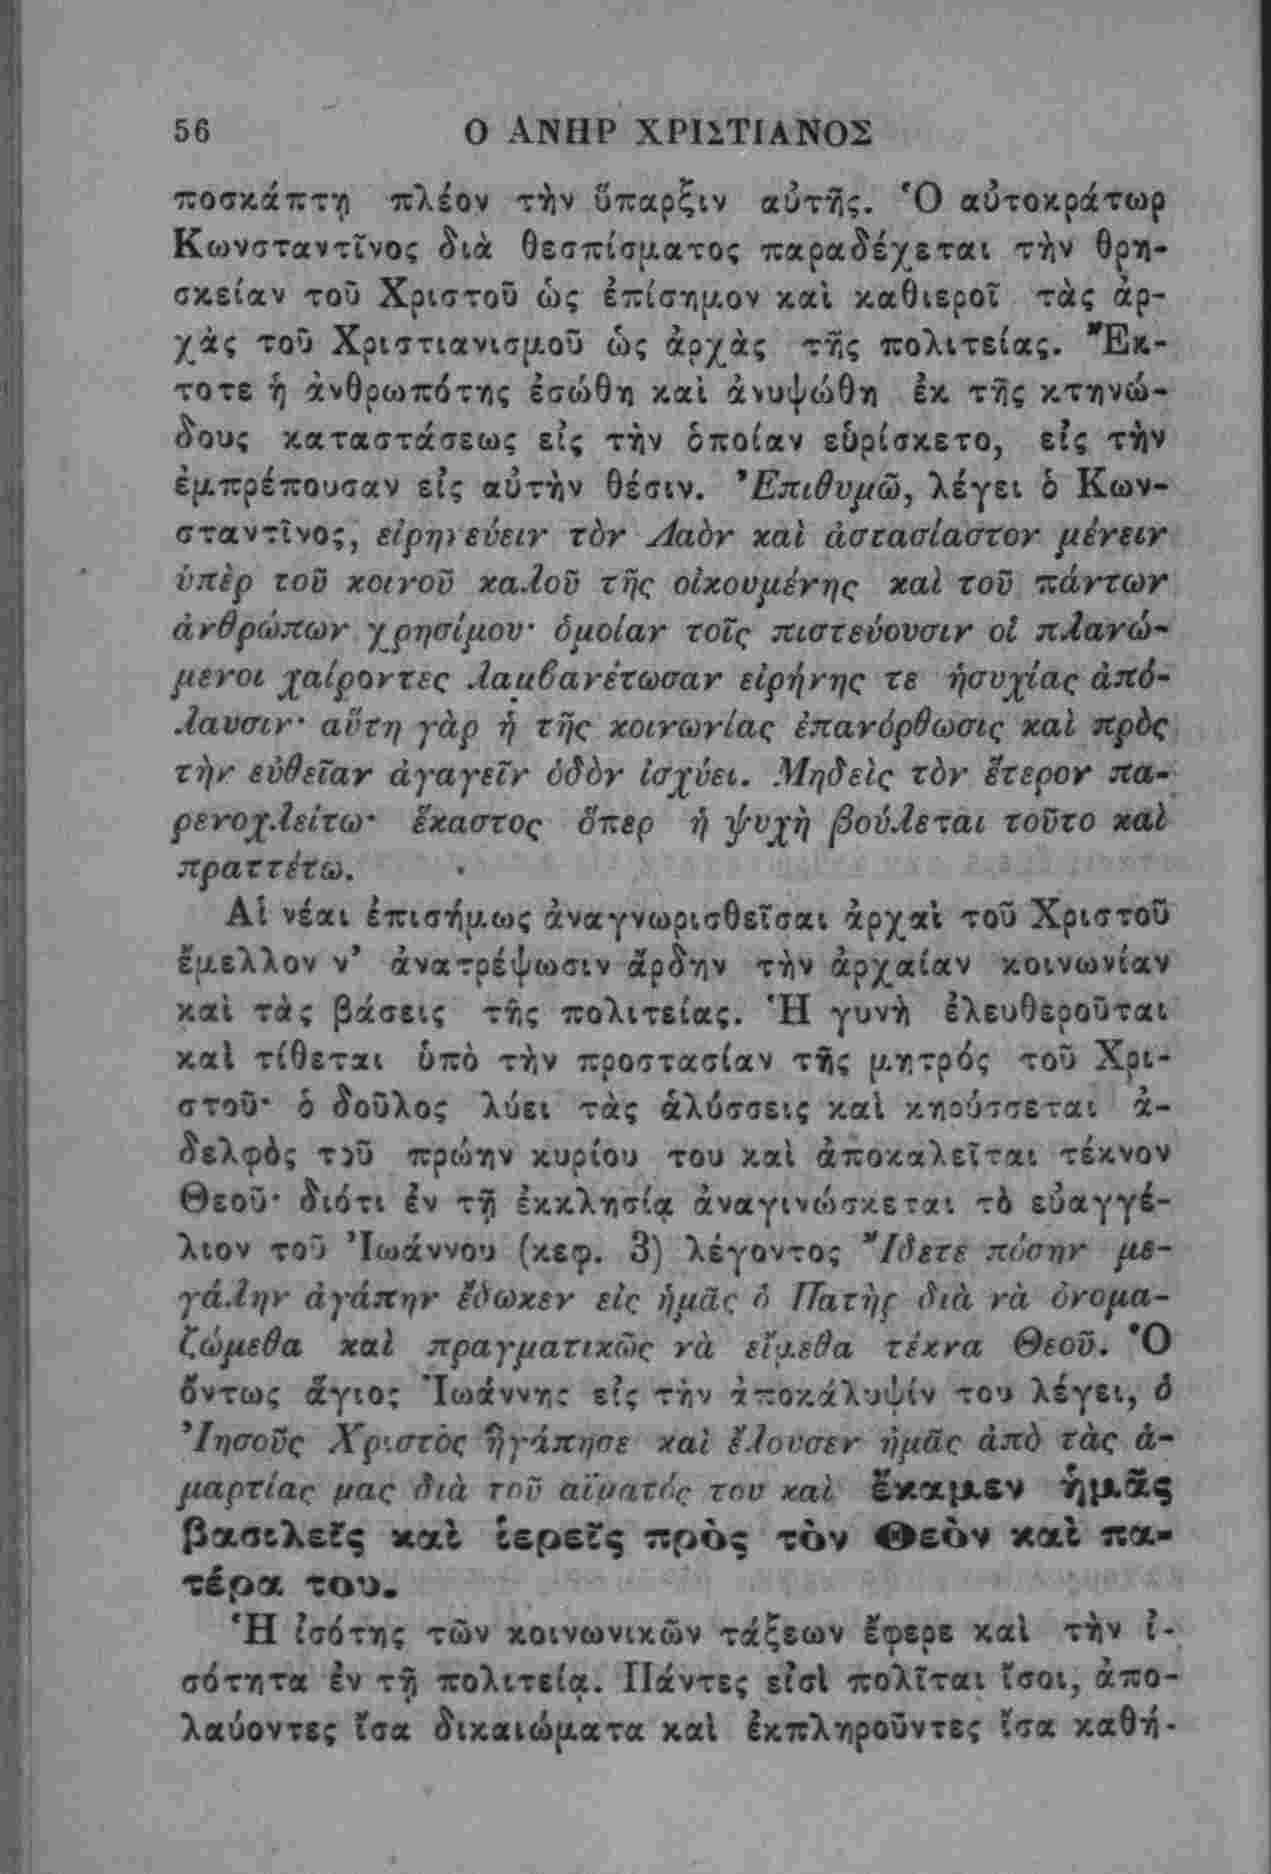 56 Ο ΑΝΗΡ ΧΡΙΣΤΙΑΝΟΣ
ποσκάπτῃ πλέον τὴν ὕπαρξιν αὐτῆς. Ὁ αὐτοκράτωρ
Κωνσταντῖνος διὰ θεσπίσματος παραδέχεται τὴν θρη-
σκείαν τοῦ Χριστοῦ ὡς ἐπίσημον καὶ καθιεροῖ τὰς ἀρ-
χὰς τοῦ Χριστιανισμοῦ ὡς ἀρχὰς τῆς πολιτείας. Ἔκ-
τοτε ἡ ἀνθρωπότης ἐσώθη καὶ ἀνυψώθη ἐκ τῆς κτηνώ-
δους καταστάσεως εἰς τὴν ὁποίαν εὑρίσκετο, εἰς τὴν
ἐμπρέπουσαν εἰς αὐτὴν θέσιν. Ἐπιθυμῶ, λέγει ὁ Κων-
σταντῖνος, εἰρηνεύειν τὸν Λαὸν καὶ ἀστασίαστον μένειν
ὑπὲρ τοῦ κοινοῦ καλοῦ τῆς οἰκουμένης καὶ τοῦ πάντων
ἀνθρώπων χρησίμου· ὁμοίαν τοῖς πιστεύουσιν οἱ πλανώ-
μενοι χαίροντες λαμβανέτωσαν εἰρήνης τε ἡσυχίας ἀπό-
λαυσιν· αὕτη γὰρ ἡ τῆς κοινωνίας ἐπανόρθωσις καὶ πρὸς
τὴν εὐθεῖαν ἀγαγεῖν ὁδὸν ἰσχύει. Μηδεὶς τὸν ἕτερον πα-
ρενοχλείτω· ἕκαστος ὅπερ ἡ ψυχὴ βούλεται τοῦτο καὶ
πραττέτω.
Αἱ νέαι ἐπισήμως ἀναγνωρισθεῖσαι ἀρχαὶ τοῦ Χριστοῦ
ἔμελλον ν' ἀνατρέψωσιν ἄρδην τὴν ἀρχαίαν κοινωνίαν
καὶ τὰς βάσεις τῆς πολιτείας. Ἡ γυνὴ ἐλευθεροῦται
καὶ τίθεται ὑπὸ τὴν προστασίαν τῆς μητρός τοῦ Χρι-
στοῦ· ὁ δοῦλος λύει τὰς ἁλύσσεις καὶ κηρύσσεται ἀ-
δελφὸς τοῦ πρώην κυρίου του καὶ ἀποκαλεῖται τέκνον
Θεοῦ· διότι ἐν τῇ ἐκκλησίᾳ ἀναγινώσκεται τὸ εὐαγγέ-
λιον τοῦ Ἰωάννου (κεφ. 3) λέγοντος Ἴδετε πόσην με-
γάλην ἀγάπην ἔδωκεν εἰς ἡμᾶς ὁ Πατὴρ διὰ νὰ ὀνομα-
ζώμεθα καὶ πραγματικῶς νὰ εἴμεθα τέκνα Θεοῦ. Ὁ
ὄντως ἅγιος Ἰωάννης εἰς τὴν ἀποκάλυψίν του λέγει, ὁ
Ἰησοῦς Χριστὸς ἠγάπησε καὶ ἔλουσεν ἡμᾶς ἀπὸ τὰς ἁ-
μαρτίας μας διὰ τοῦ αἵματός του καὶ ἔκαμεν ἡμᾶς
βασιλεῖς καὶ ἱερεῖς πρὸς τὸν Θεὸν καὶ πα-
τέρα του.
Ἡ ἰσότης τῶν κοινωνικῶν τάξεων ἔφερε καὶ τὴν ἰ-
σότητα ἐν τῇ πολιτείᾳ. Πάντες εἰσὶ πολῖται ἴσοι, ἀπο-
λαύοντες ἴσα δικαιώματα καὶ ἐκπληροῦντες ἴσα καθή-